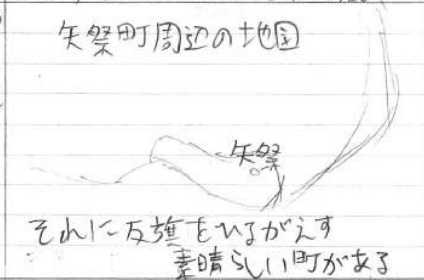 矢祭町周辺の地図
矢祭
それに反旗をひるがえす
素晴らしい町がある